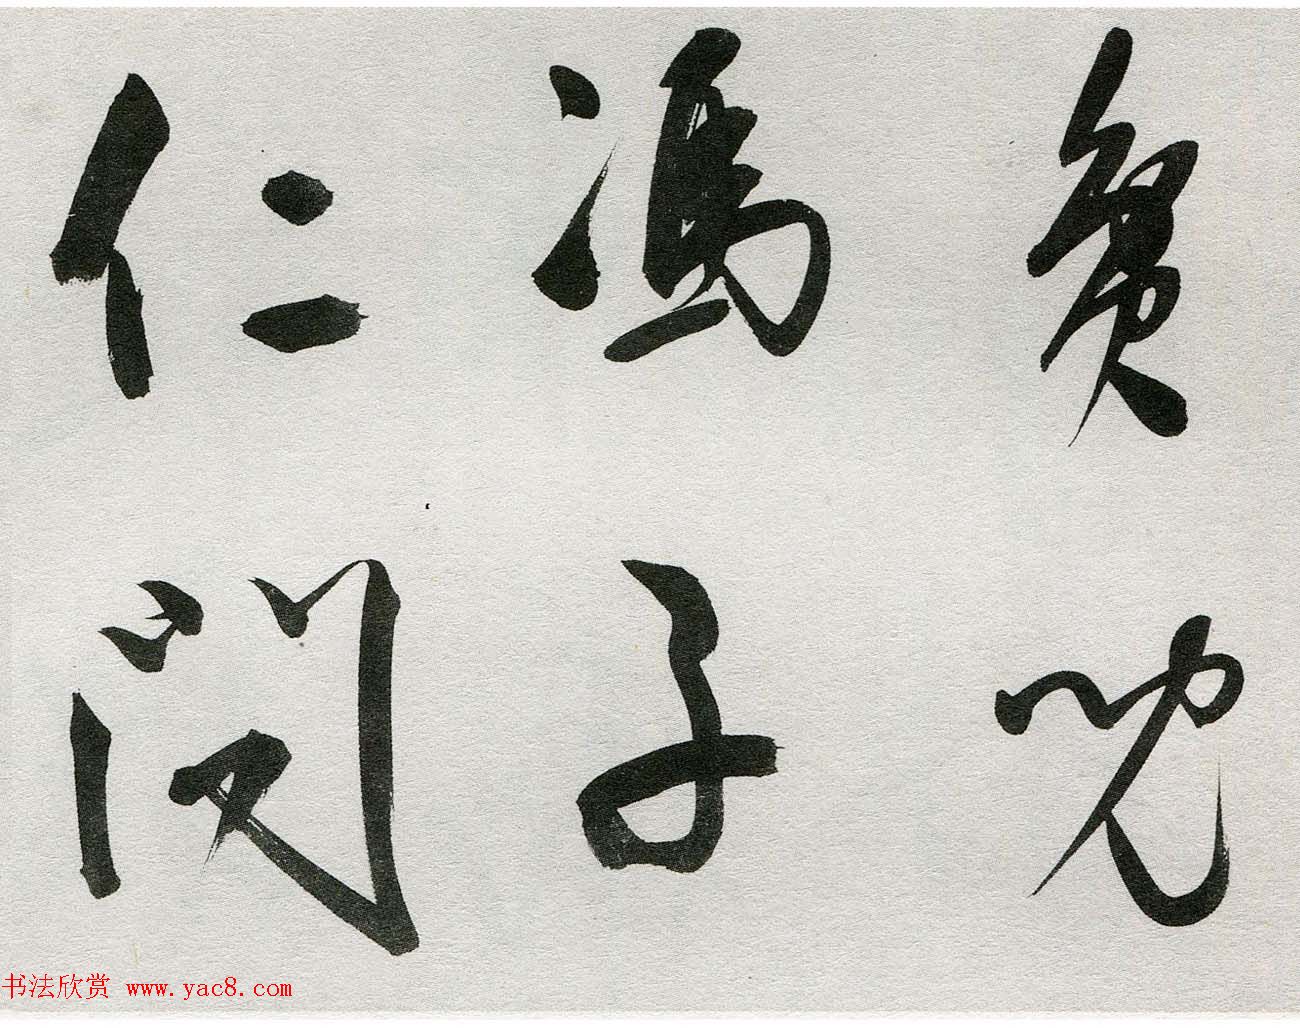 貧
馮子
仁閔
书法欣赏 www.yac8.com